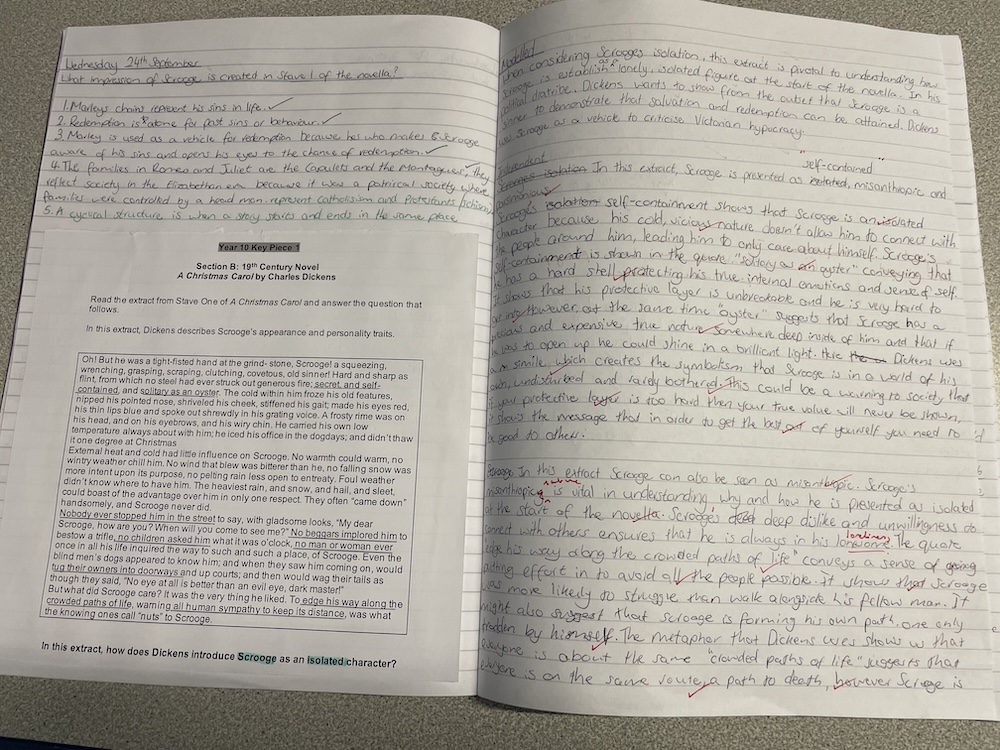 Wednesday 24th September
What impression of Scrooge is created in Stave 1 of the novella?
1. Marleys chains represent his sins in life.
2. Redemption is atone for past sins or behaviour.
3. Marley is used as a vehicle for redemption because he who makes Scrooge
aware of his sins and opens his eyes to the chance of redemption.
4. The families in Romeo and Juliet are the Capulets and the Montagues, they
reflect society in the Elizabethan era because it was a patrical society where
families were controlled by a head man represent Catholisism and Protestants
5. A cyclical structure is when a story starts and ends in the same place
Year 10 Key Piece 1
Section B: 19th Century Novel
A Christmas Carol by Charles Dickens
Read the extract from Stave One of A Christmas Carol and answer the question that
follows.
In this extract, Dickens describes Scrooge's appearance and personality traits.
Oh! But he was a tight-fisted hand at the grind- stone, Scrooge! a squeezing,
wrenching, grasping, scraping, clutching, covetous, old sinner! Hard and sharp as
flint, from which no steel had ever struck out generous fire; secret, and self-
contained, and solitary as an oyster. The cold within him froze his old features,
nipped his pointed nose, shriveled his cheek, stiffened his gait; made his eyes red,
his thin lips blue and spoke out shrewdly in his grating voice. A frosty rime was on
his head, and on his eyebrows, and his wiry chin. He carried his own low
temperature always about with him; he iced his office in the dogdays; and didn't thaw
it one degree at Christmas
External heat and cold had little influence on Scrooge. No warmth could warm, no
wintry weather chill him. No wind that blew was bitterer than he, no falling snow was
more intent upon its purpose, no pelting rain less open to entreaty. Foul weather
didn't know where to have him. The heaviest rain, and snow, and hail, and sleet,
could boast of the advantage over him in only one respect. They often "came down"
handsomely, and Scrooge never did.
Nobody ever stopped him in the street to say, with gladsome looks, "My dear
Scrooge, how are you? When will you come to see me?" No beggars implored him to
bestow a trifle, no children asked him what it was o'clock, no man or woman ever
once in all his life inquired the way to such and such a place, of Scrooge. Even the
blind men's dogs appeared to know him; and when they saw him coming on, would
tug their owners into doorways and up courts; and then would wag their tails as
though they said, "No eye at all is better than an evil eye, dark master!"
But what did Scrooge care? It was the very thing he liked. To edge his way along the
crowded paths of life, warning all human sympathy to keep its distance, was what
the knowing ones call "nuts" to Scrooge.
In this extract, how does Dickens introduce Scrooge as an isolated character?
Modelled
When considering Scrooges isolation, this extract is pivotal to understanding how
Scrooge is establish as lonely, isolated figure at the start of the novella. In his
political diatribe, Dickens wants to show from the outset that Scrooge is a
sinner to demonstrate that salvation and redemption can be attained. Dickens
use Scrooge as a vehicle to criticise Victorian hypocracy.
Independent
In this extract, Scrooge is presented as "self-contained", misanthropic and
Scrooge's self-containment shows that Scrooge is an isolated
character because his cold, vicious nature doesn't allow him to connect with
the people around him, leading him to only care about himself. Scrooge's
self-containment is shown in the quote "solitary as an oyster" conveying that
he has a hard shell protecting his true internal emotions and sense of self.
It shows that his protective layer is unbreakable and he is very hard to
However, at the same time "oyster" suggests that Scrooge has a
precious and expensive true nature somewhere deep inside of him and that if
was to open up he could shine in a brilliant light. Dickens uses
simile which creates the symbolism that Scrooge is in a world of his
own, undisturbed and rarely bothered. This could be a warning to society that
if your protective layer is too hard then your true value will never be shown,
it shows the message that in order to get the best out of yourself you need to
be good to others.
In this extract Scrooge can also be seen as misanthropic. Scrooge's
misanthropic nature is vital in understanding why and how he is presented as isolated
at the start of the novella. Scrooge's deep dislike and unwillingness to
connect with others ensures that he is always in his loneliness. The quote
"edge his way along the crowded paths of life" conveys a sense of
putting effort in to avoid all the people possible. It show that Scrooge
was more likely to struggle than walk alongside his fellow man. It
might also suggest that scroage is forming his own path, one only
trodden by himself. The metaphor that Dickens uses shows us that
everyone is about the same "crowded paths of life" suggests that
everyone is on the same route, a path to death, however Scrooge is